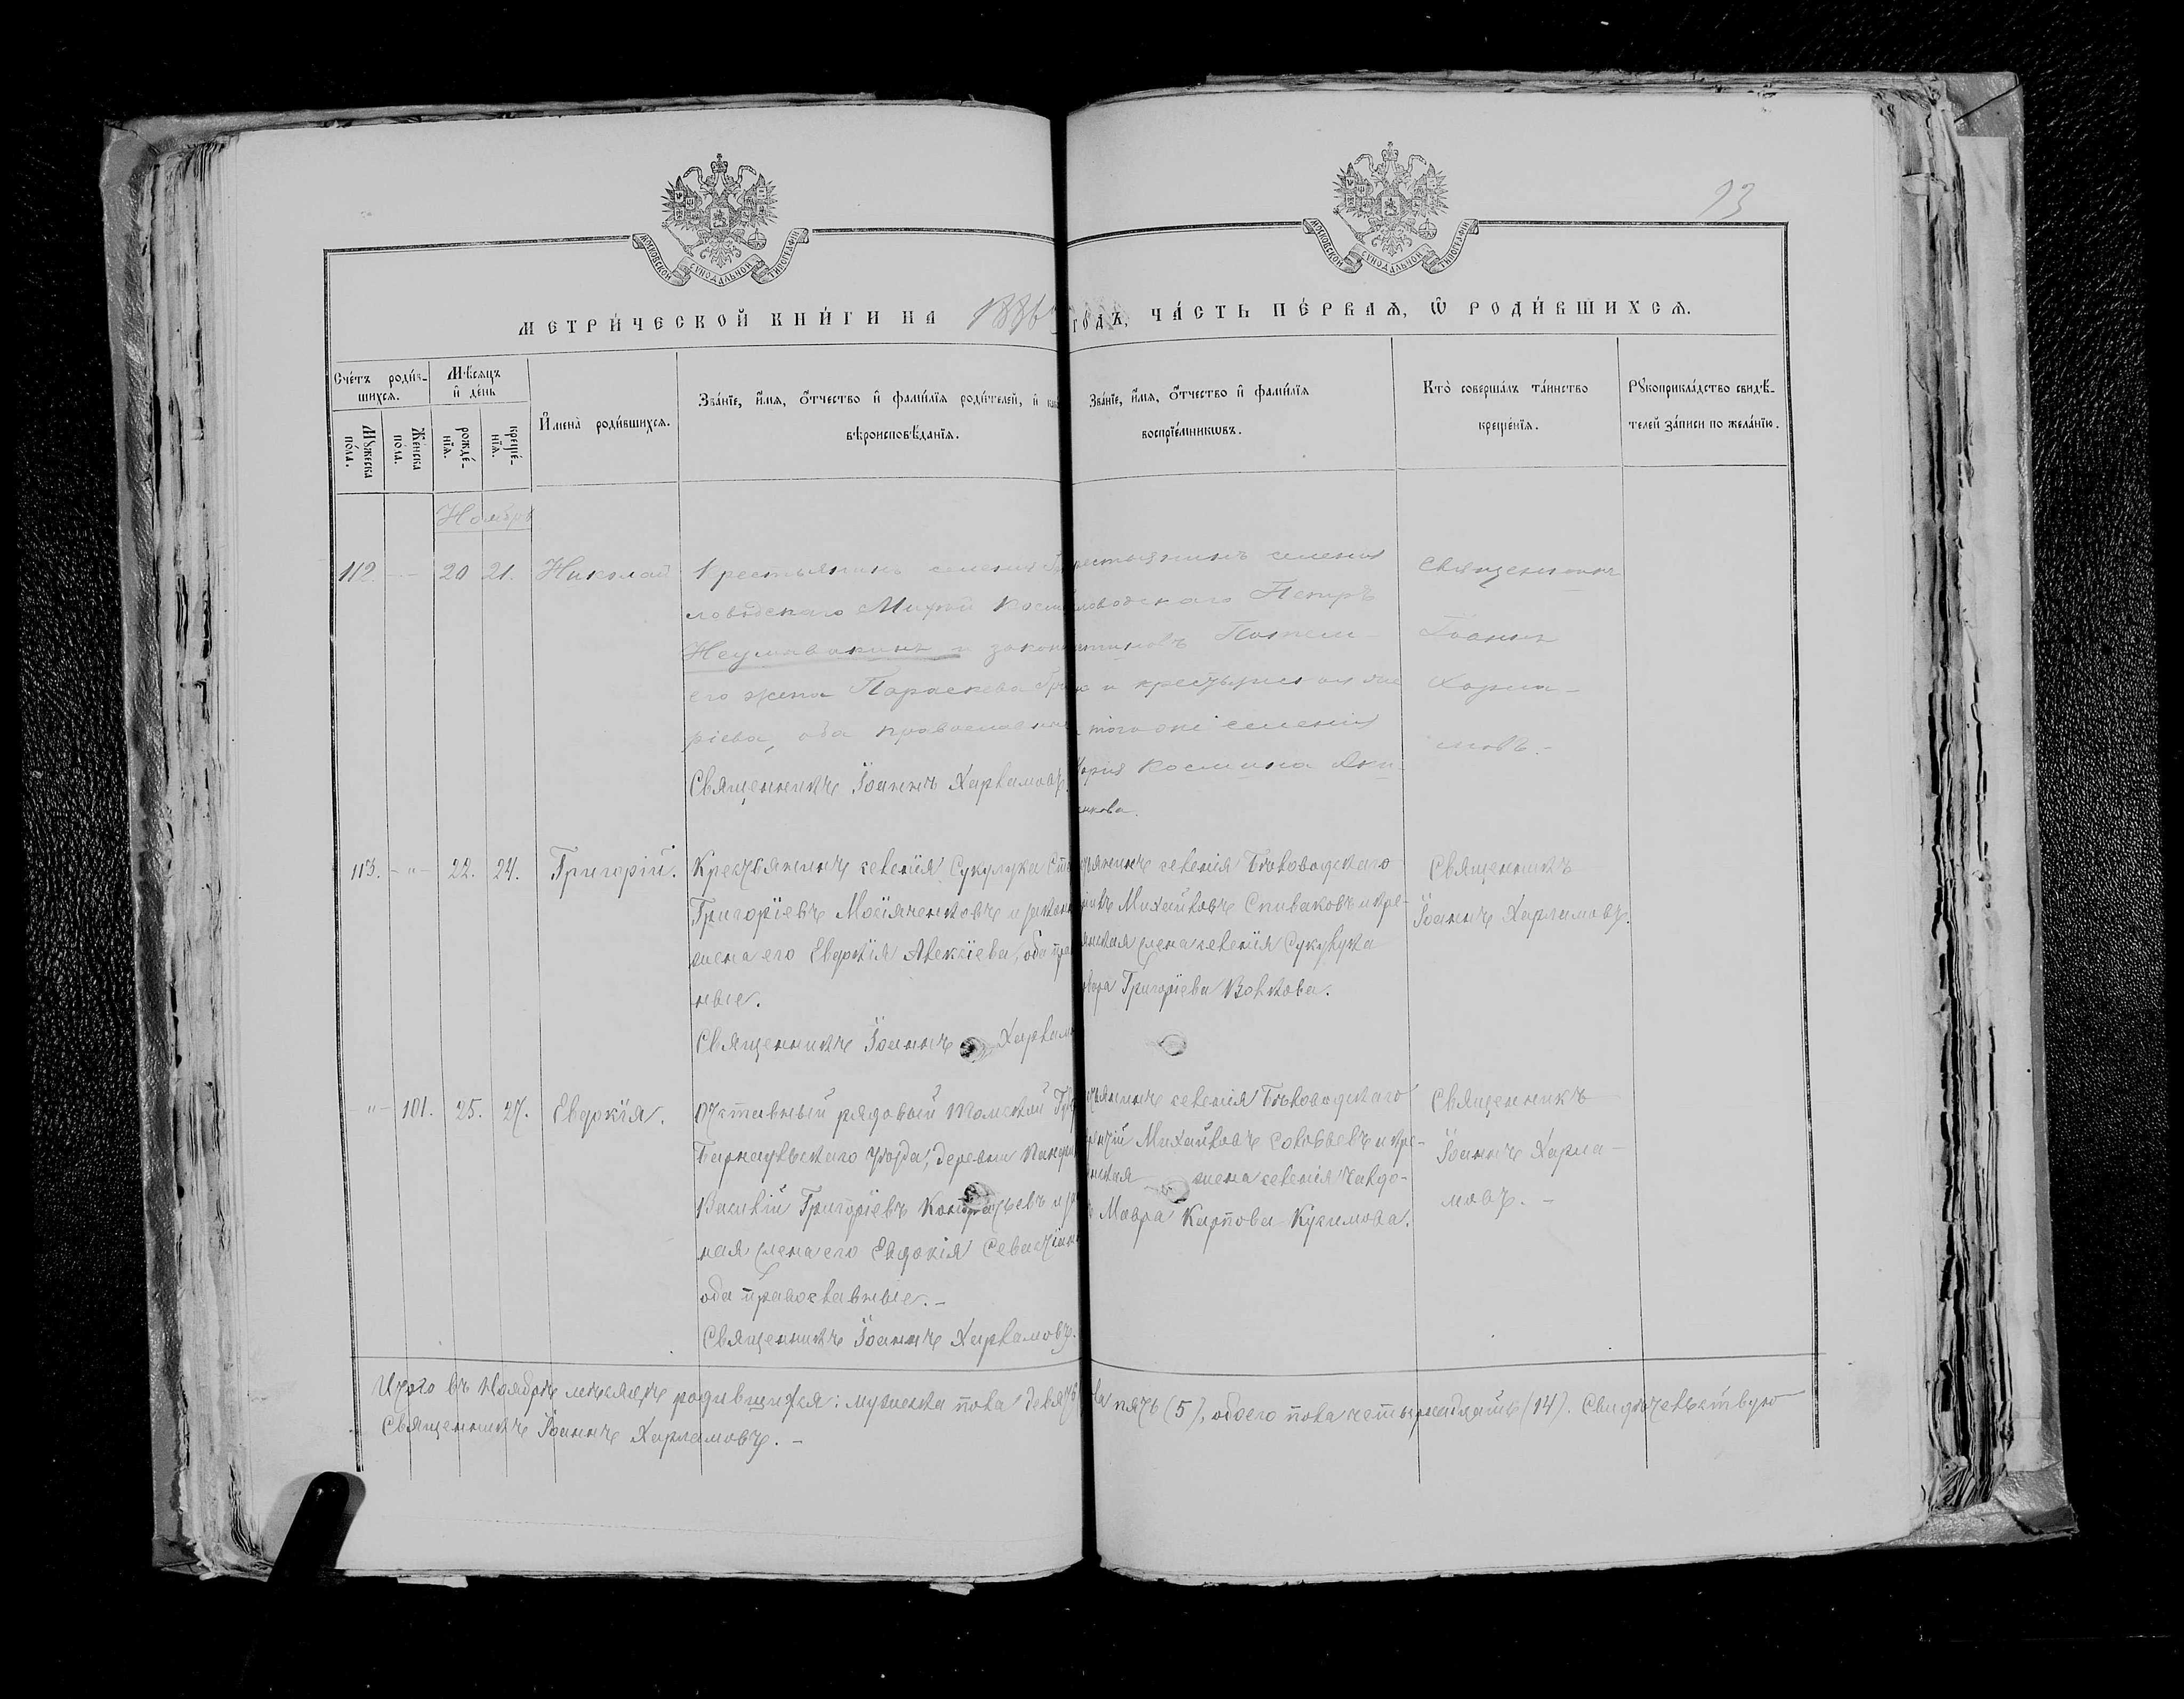 73
МОСКОВСКОЙ СѴНОДАЛЬНОЙ ТИПОГРАФІИ
МОСКОВСКОЙ СѴНОДАЛЬНОЙ ТИПОГРАФІИ
МЕТРИ́ЧЕСКОЙ КНИ́ГИ НА 1886 ГОДЪ, ЧА́СТЬ ПЕ́РВАѦ, Ѡ РОДИ́ВШИХСѦ.
Сче́тъ роди́в-
шихсѧ.
Мꙋжеска по́ла.
Же́нска по́ла.
Мѣсяцъ
и де́нь
рожде́-
нїѧ.
креще́-
нїѧ.
И́мена̀ роди́вшихсѧ.
Зва́нїе, и́мѧ, о́тчество и фами́лїѧ роди́телей, и
вѣроисповѣ́данїѧ.
Зва́нїе, и́мѧ, о́тчество и фами́лїѧ
воспрїе́мникѡвъ.
Кто̀ соверша́лъ та́инство
креще́нїѧ.
Рꙋкоприкла́дство свидѣ́-
телей за́писи по жела́нїю.
Ноябрь
112. — 20 21. Николай
Крестьянинъ селенія
ловодскаго
Неумывакинъ и закон
его жена Параскева
ріева, оба православные
Священникъ Іоаннъ Харламовъ.
рестьянинъ селенія
ловодскаго Петръ
и крестьянская
тогоже селенія
Космина
Священникъ
Іоаннъ
Харла-
мовъ.-
113. - " - 22. 24. Григорій.
Крестьянинъ селенія Сукулука
Григоріевъ Мосіяченковъ и закон
жена его Евдокія Алексіева, оба пра
ные.
Священникъ Іоаннъ Харламо
стьянинъ селенія Бѣловодскаго
Михайловъ Спиваковъ и кре-
янская жена селенія Сукулука
вара Григоріева Волкова.
Священникъ
Іоаннъ Харламовъ.
" - 101. 25. 27. Евдокія.
Отставный рядовый Томской Губ
Барнаульскаго уѣзда, деревни
Василій Григоріевъ Кондратьевъ и за
ная жена его Евдокія Севастіан
оба православные. -
Священникъ Іоаннъ Харламовъ.
стьянинъ селенія Бѣловодскаго
Михайловъ Соловьевъ и кре-
нская жена селенія Чалдо-
Мавра Карпова Кузимова.
Священникъ
Іоаннъ Харла-
мовъ. -
Итого въ Ноябрѣ мѣсяцѣ родившихся: мужеска пола девять ла пять (5), обоего пола четырнадцать (14). Свидѣтельствую
Священникъ Іоаннъ Харламовъ. -